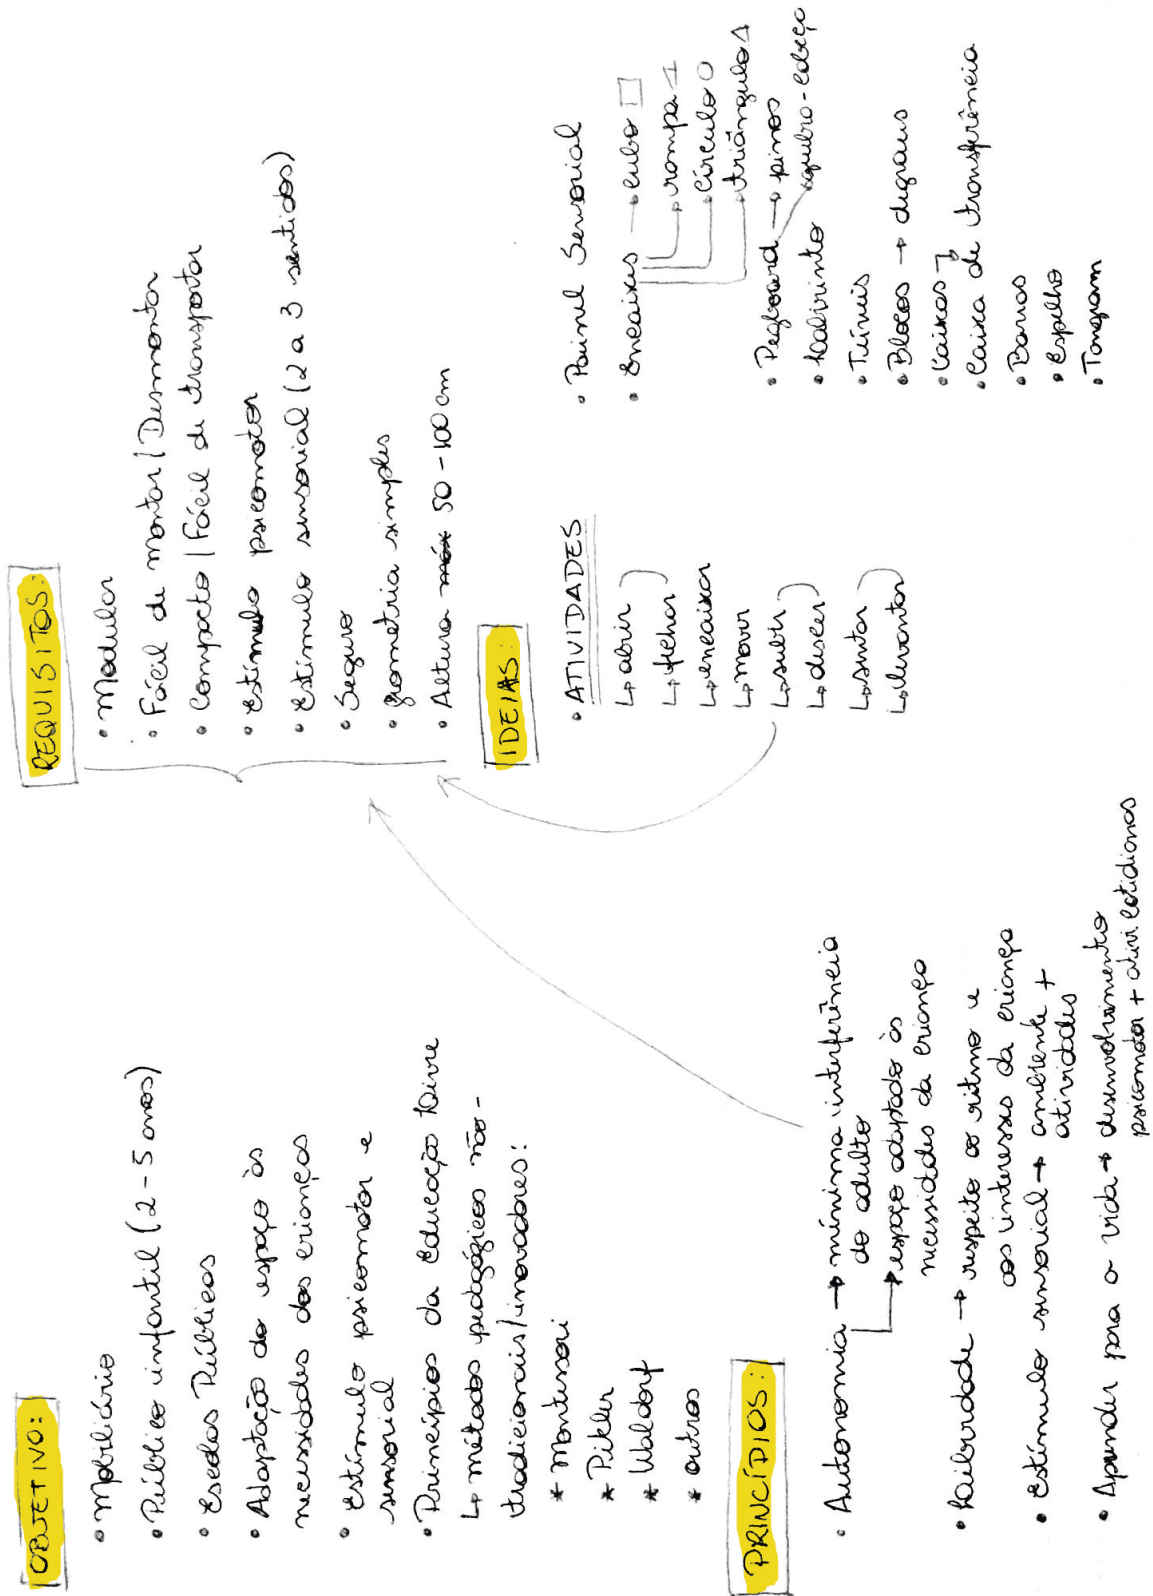 OBJETIVO:
• Mobiliário
• Público infantil (2 - 5 anos)
• Escolas Públicas
• Adaptação do espaço às
necessidades das crianças
• Estímulo psicomotor e
sensorial
• Princípios da Educação Livre
↳ métodos pedagógicos não-
tradicionais/inovadores:
* Montessori
* Pikler
* Waldorf
* outros
PRINCÍDIOS:
• Autonomia → mínima interferência
do adulto
→ espaço adaptado às
necessidades da criança
• Liberdade → respeito ao ritmo e
aos interesses da criança
• Estímulo sensorial → ambiente +
atividades
• Aprender para a vida → desenvolvimento
psicomotor + ativi cotidianas
REQUISITOS:
• Modular
• Fácil de montar / Desmontar
• Compacto / Fácil de transportar
• Estímulo psicomotor
• Estímulo sensorial (2 a 3 sentidos)
• Seguro
• Geometria simples
• Altura máx 50 - 100 cm
IDEIAS:
• ATIVIDADES
↳ abrir
↳ fechar
↳ encaixar
↳ mover
↳ subir
↳ descer
↳ sentar
↳ levantar
• Painel Sensorial
• Encaixes → cubo
→ rampa
→ círculo
→ triângulo
• Pegboard → pinos
• Labirinto
quebra-cabeça
• Túneis
• Blocos → degraus
• Caixas
• Caixa de transferência
• Barras
• Espelho
• Tangram